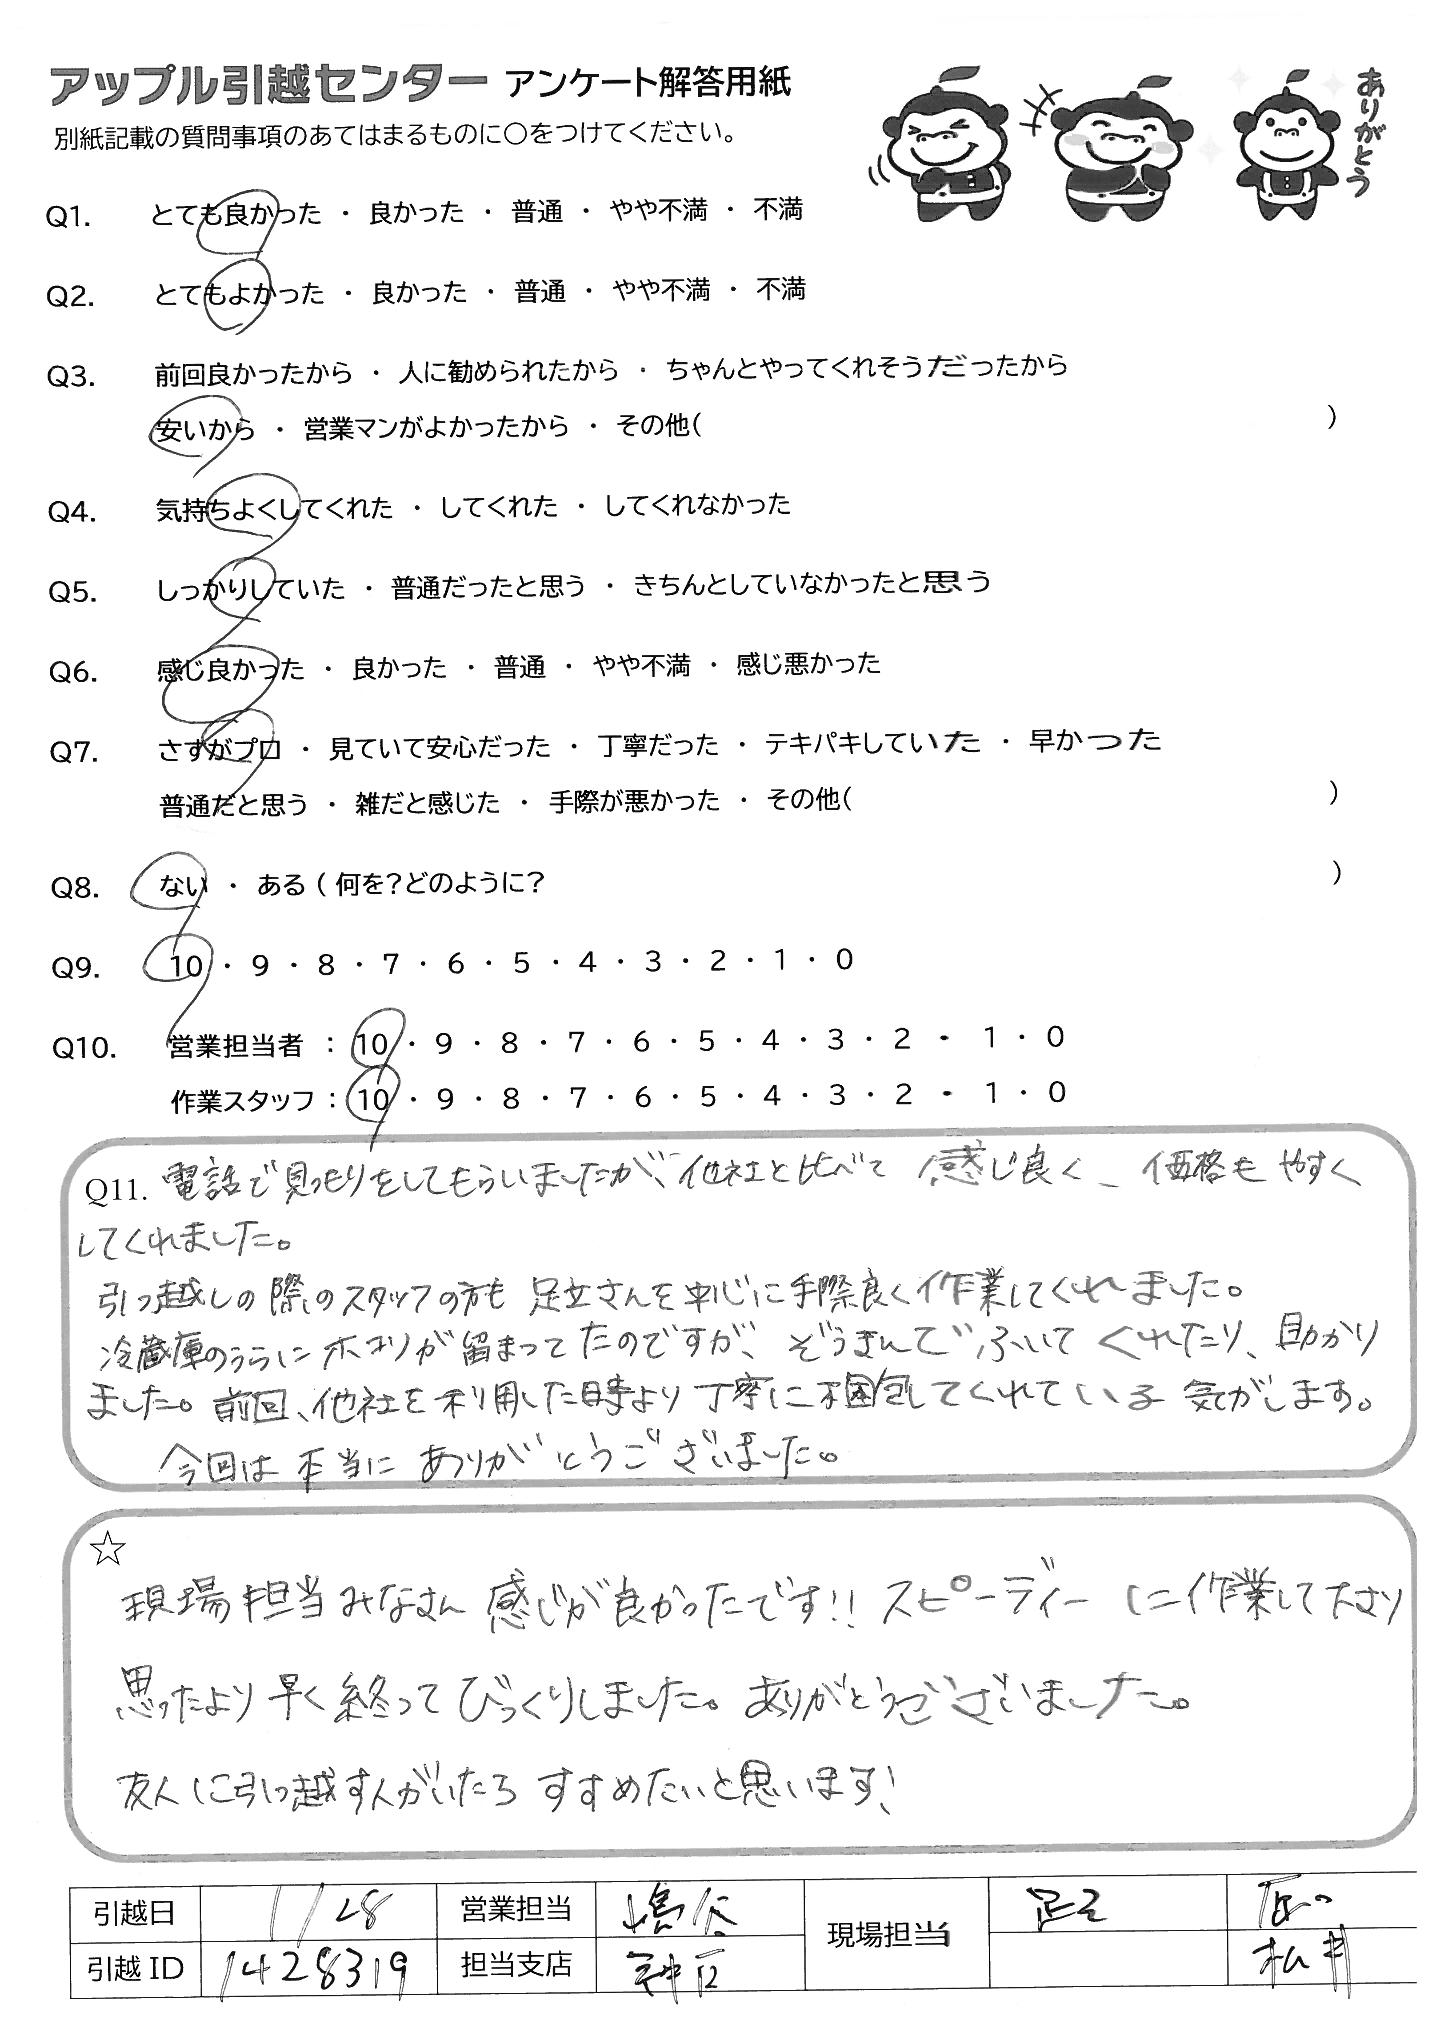 アップル引越センター アンケート解答用紙
ありがとう
別紙記載の質問事項のあてはまるものに○をつけてください。
Q1. とても良かった ・ 良かった ・ 普通 ・ やや不満 ・ 不満
Q2. とてもよかった ・ 良かった ・ 普通 ・ やや不満 ・ 不満
Q3. 前回良かったから ・ 人に勧められたから ・ ちゃんとやってくれそうだったから
安いから ・ 営業マンがよかったから ・ その他( )
Q4. 気持ちよくしてくれた ・ してくれた ・ してくれなかった
Q5. しっかりしていた ・ 普通だったと思う ・ きちんとしていなかったと思う
Q6. 感じ良かった ・ 良かった ・ 普通 ・ やや不満 ・ 感じ悪かった
Q7. さすがプロ ・ 見ていて安心だった ・ 丁寧だった ・ テキパキしていた ・ 早かった
普通だと思う ・ 雑だと感じた ・ 手際が悪かった ・ その他( )
Q8. ない ・ ある ( 何を？どのように？ )
Q9. 10 ・ 9 ・ 8 ・ 7 ・ 6 ・ 5 ・ 4 ・ 3 ・ 2 ・ 1 ・ 0
Q10. 営業担当者 ： 10 ・ 9 ・ 8 ・ 7 ・ 6 ・ 5 ・ 4 ・ 3 ・ 2 ・ 1 ・ 0
作業スタッフ ： 10 ・ 9 ・ 8 ・ 7 ・ 6 ・ 5 ・ 4 ・ 3 ・ 2 ・ 1 ・ 0
Q11. 電話で見つもりをしてもらいましたが、他社と比べて 感じ良く、価格もやすく
してくれました。
引っ越しの際のスタッフの方も 足立さんを中心に手際良く作業してくれました。
冷蔵庫のうらにホコリが留まってたのですが、ぞうきんでふいてくれたり、助かり
ました。前回、他社を利用した時より丁寧に梱包してくれている気がします。
今回は本当にありがとうございました。
☆
現場担当みなさん 感じが良かったです!! スピーディーに作業して下さり
思ったより早く終ってびっくりしました。ありがとうございました。
友人に引っ越す人がいたらすすめたいと思います!
引越日 1/28 営業担当 嶋谷 現場担当 足立
引越ID 1428319 担当支店 神戸 松井